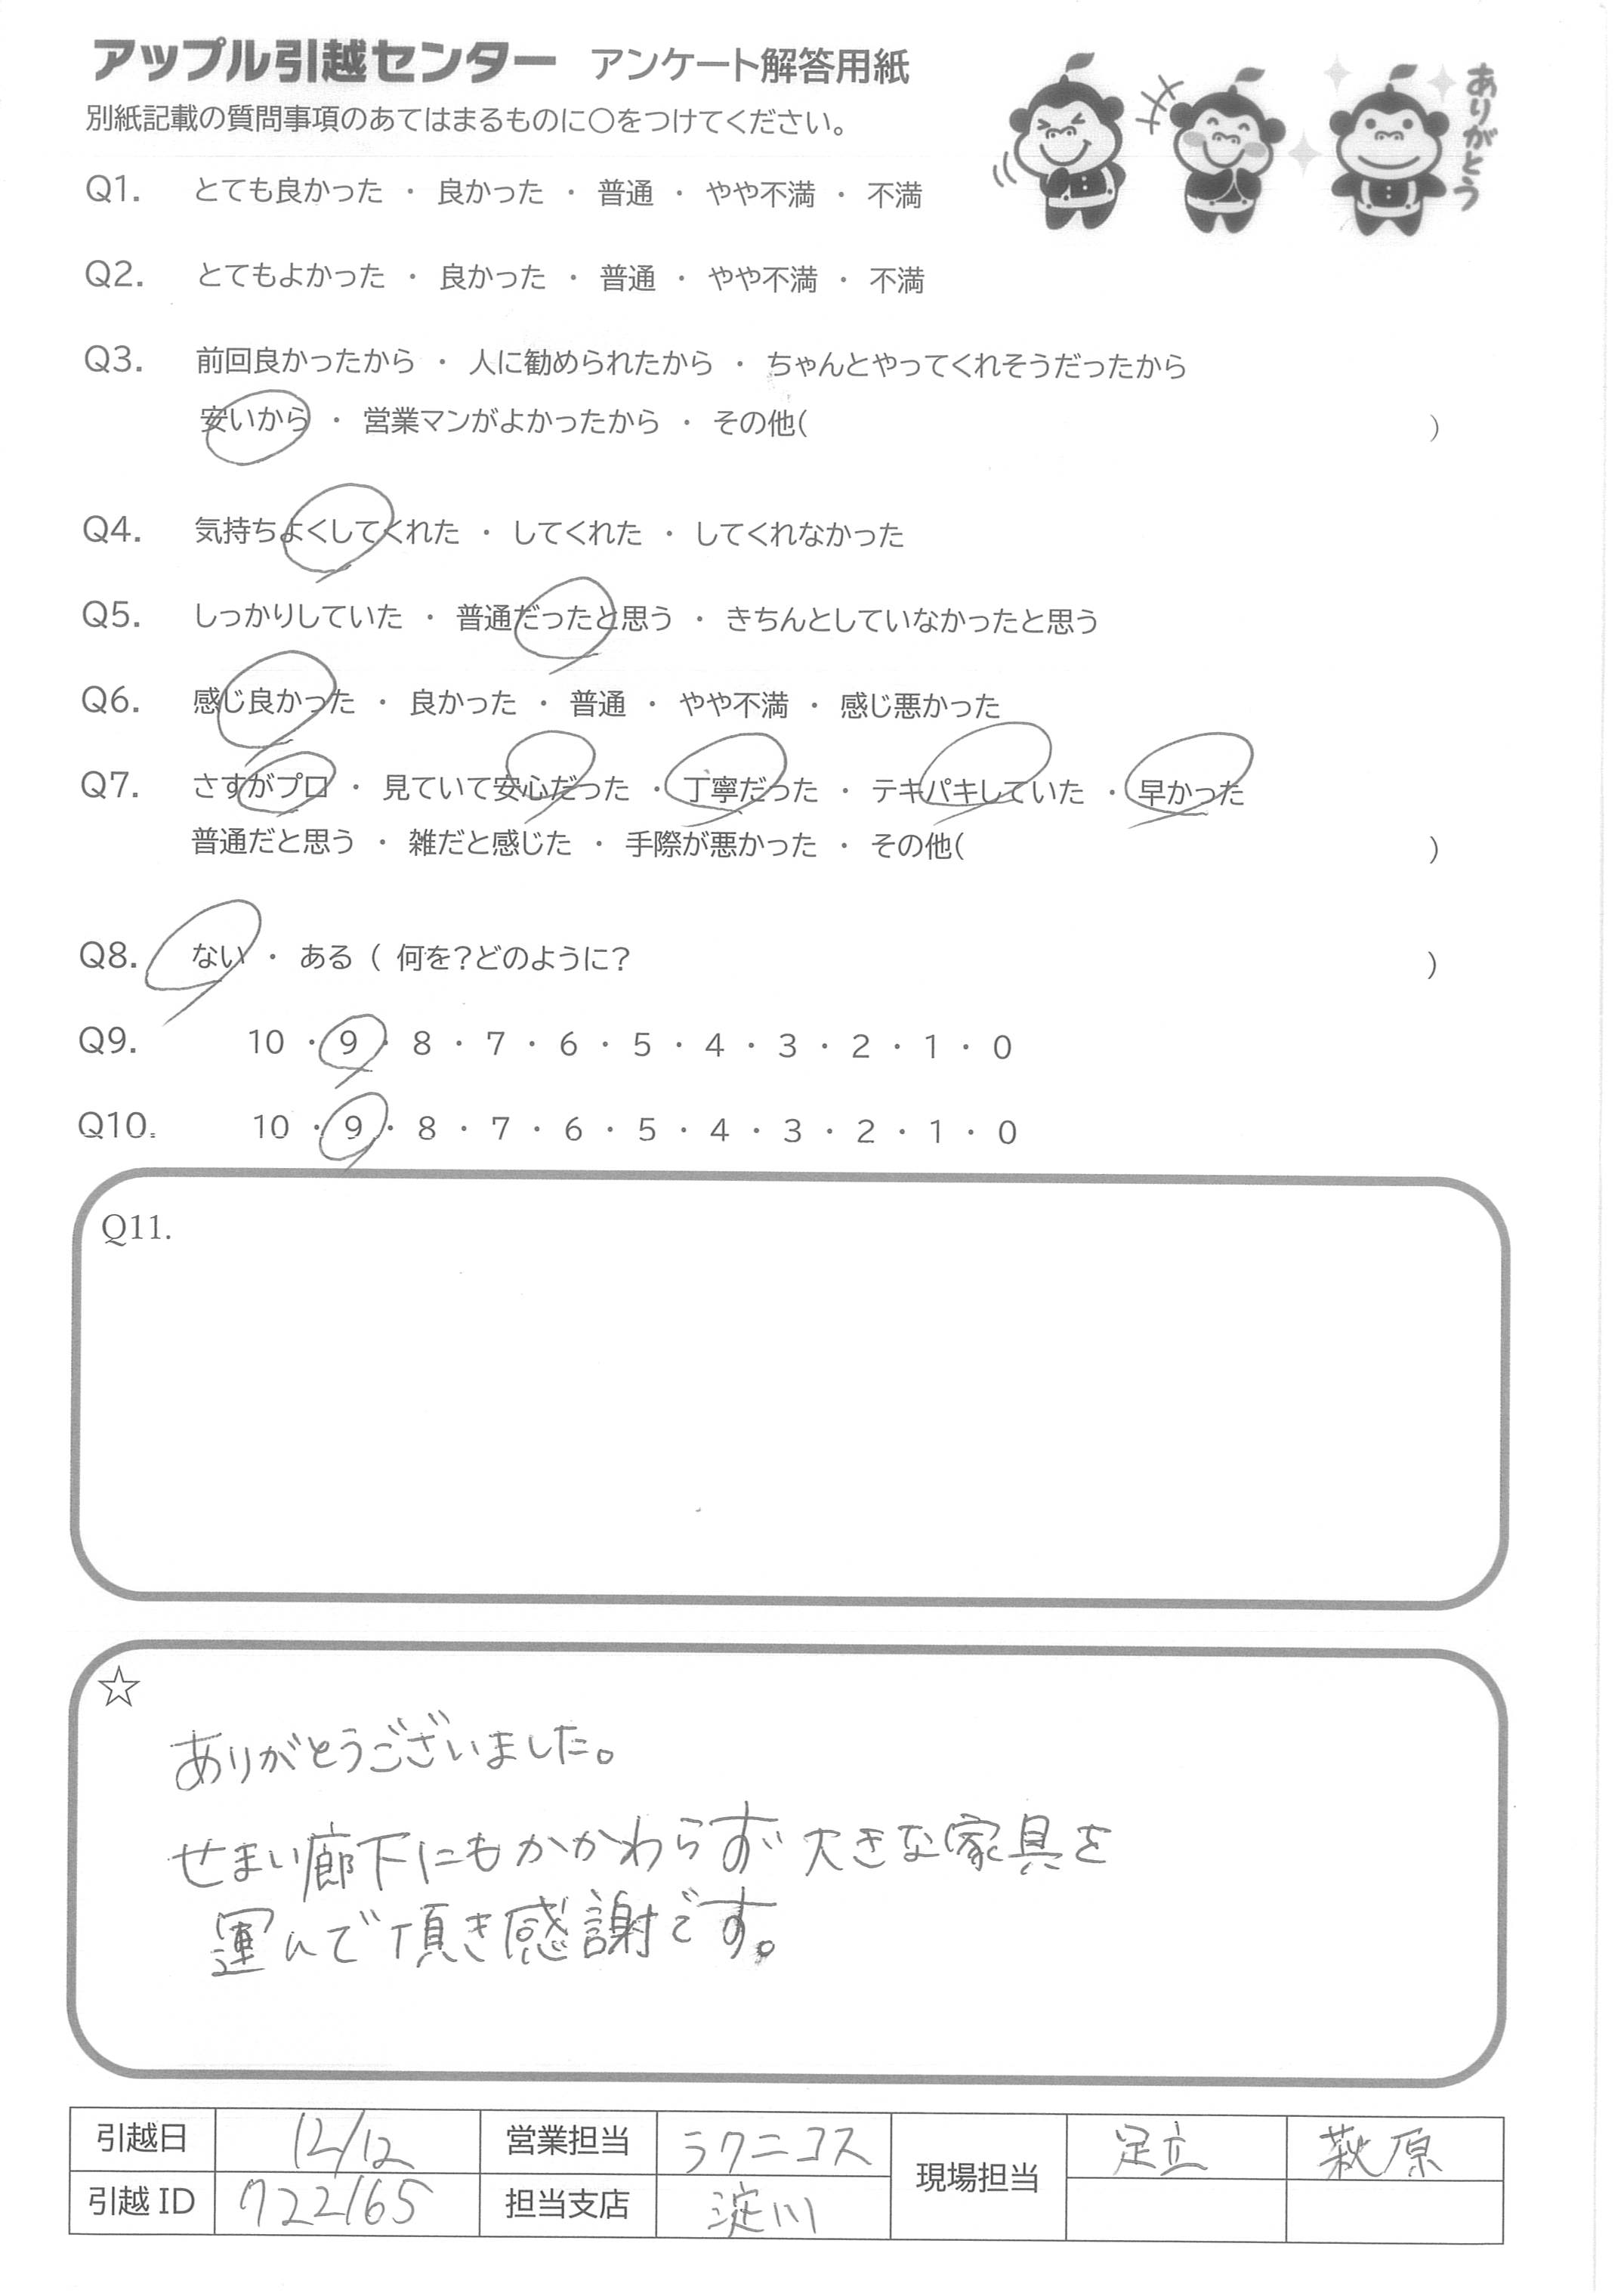 アップル引越センター アンケート解答用紙
別紙記載の質問事項のあてはまるものに○をつけてください。
ありがとう
Q1. とても良かった ・ 良かった ・ 普通 ・ やや不満 ・ 不満
Q2. とてもよかった ・ 良かった ・ 普通 ・ やや不満 ・ 不満
Q3. 前回良かったから ・ 人に勧められたから ・ ちゃんとやってくれそうだったから
安いから ・ 営業マンがよかったから ・ その他( )
Q4. 気持ちよくしてくれた ・ してくれた ・ してくれなかった
Q5. しっかりしていた ・ 普通だったと思う ・ きちんとしていなかったと思う
Q6. 感じ良かった ・ 良かった ・ 普通 ・ やや不満 ・ 感じ悪かった
Q7. さすがプロ ・ 見ていて安心だった ・ 丁寧だった ・ テキパキしていた ・ 早かった
普通だと思う ・ 雑だと感じた ・ 手際が悪かった ・ その他( )
Q8. ない ・ ある ( 何を?どのように? )
Q9. 10 ・ 9 ・ 8 ・ 7 ・ 6 ・ 5 ・ 4 ・ 3 ・ 2 ・ 1 ・ 0
Q10. 10 ・ 9 ・ 8 ・ 7 ・ 6 ・ 5 ・ 4 ・ 3 ・ 2 ・ 1 ・ 0
Q11.
☆
ありがとうございました。
せまい廊下にもかかわらず大きな家具を
運んで頂き感謝です。
引越日 12/12 営業担当 ラクニコス 現場担当 足立 萩原
引越ID 722165 担当支店 淀川